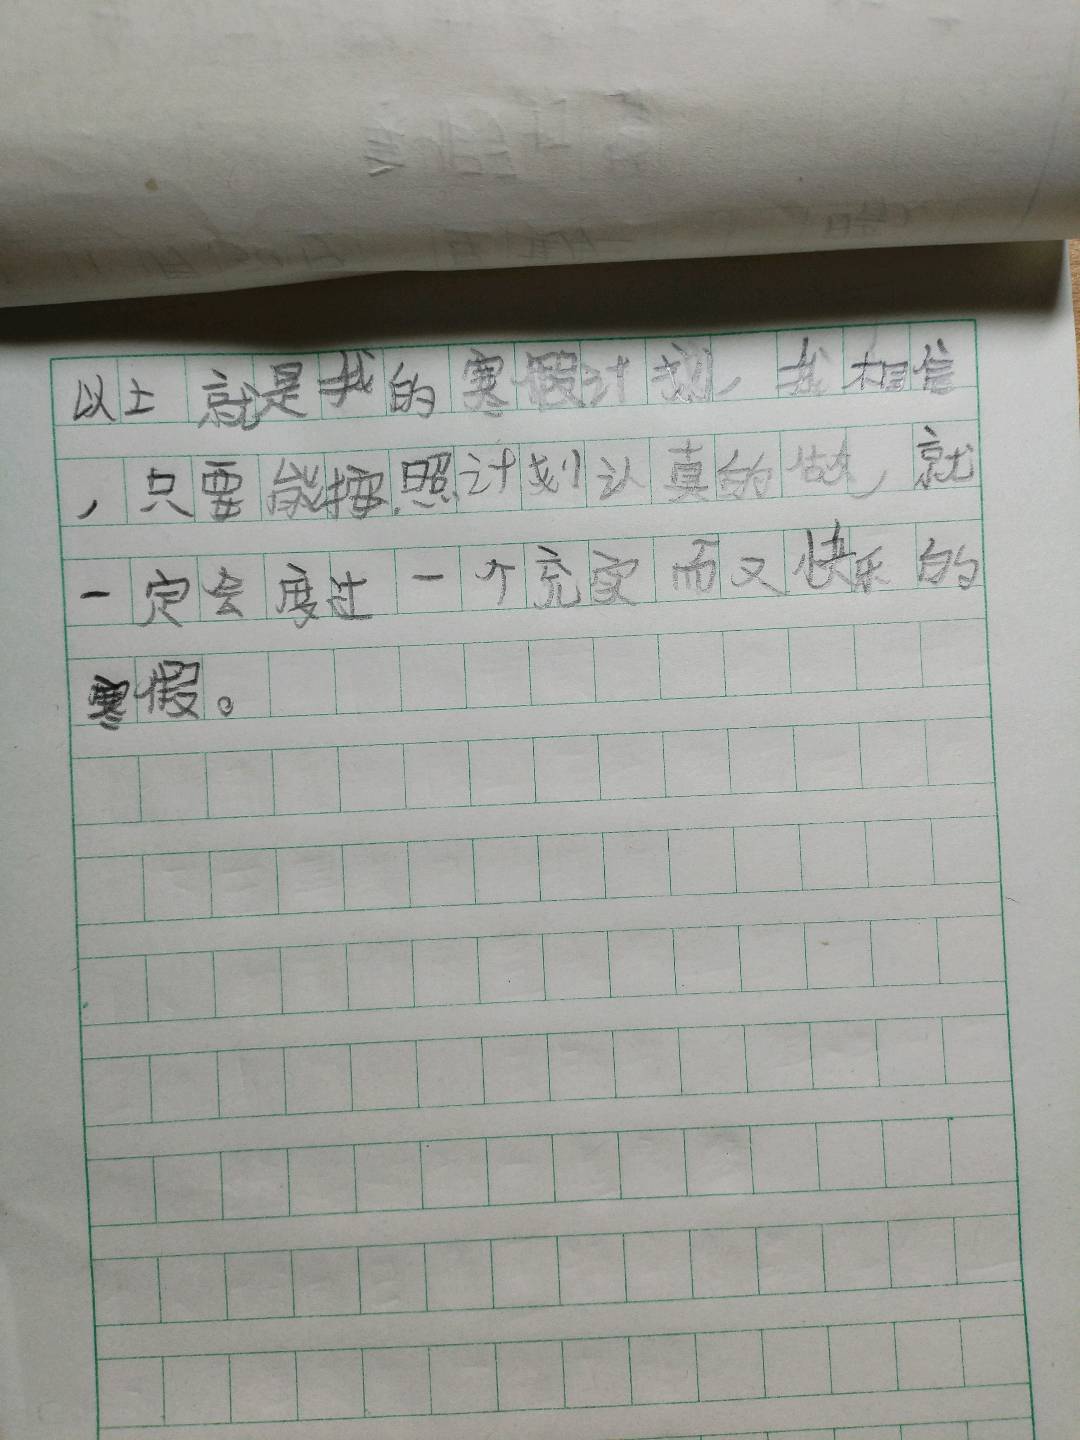 以上就是我的寒假计划，我相信
，只要能按照计划认真的做，就
一定会度过一个充实而又快乐的
寒假。